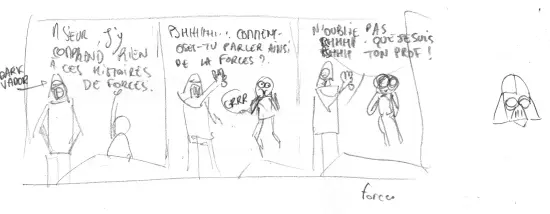 MSEUR J'Y
COMPREND RIEN
À CES HISTOIRES
DE FORCES.
DARK
VADOR
PSHHHHH... COMMENT
OSES-TU PARLER AINSI
DE LA FORCES ?
GRRR
N'OUBLIE PAS
PSHHH QUE JE SUIS
PSHHH TON PROF !
forces